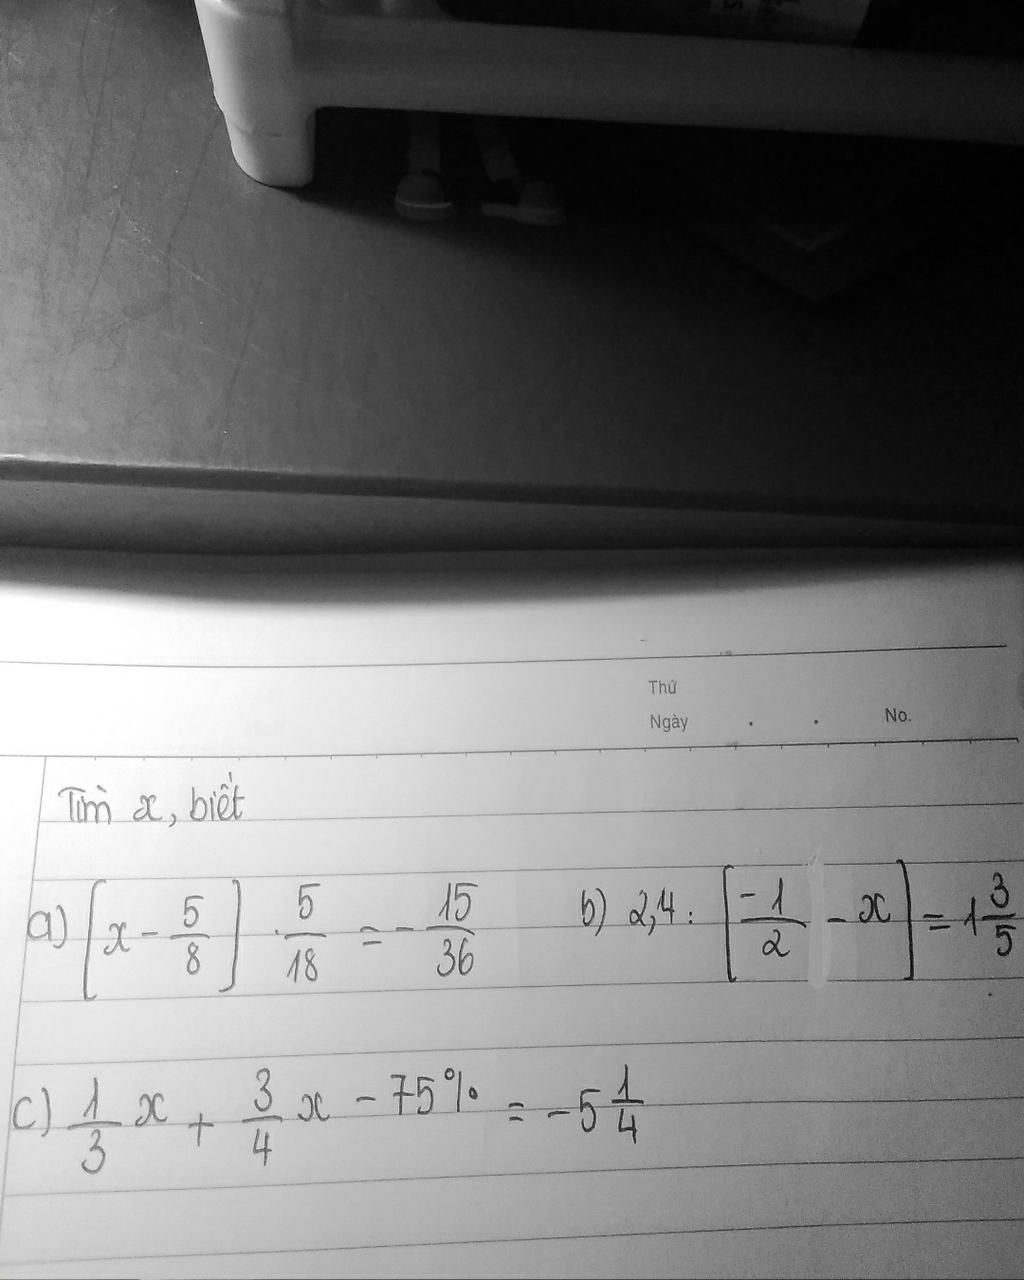 Thứ
Ngày . . No.
Tìm x, biết
a) [x - 5/8] . 5/18 = - 15/36 b) 2,4 : [-1/2 - x] = 1 3/5
c) 1/3 x + 3/4 x - 75% = -5 1/4